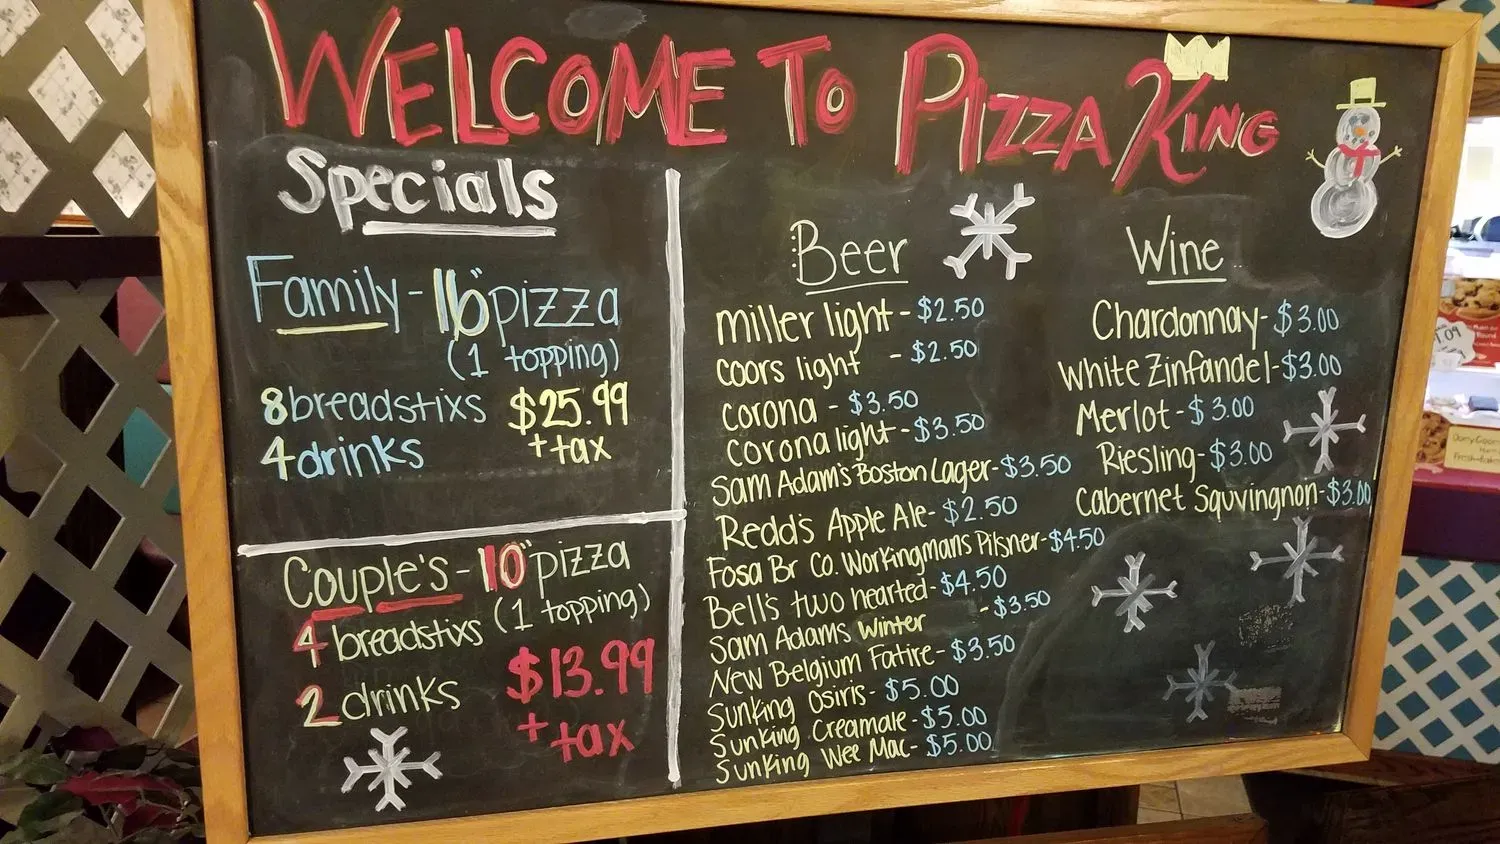 WELCOME TO PIZZA KING
Specials
Family - 16" pizza
(1 topping)
8 breadstixs $25.99
4 drinks + tax
Couple's - 10" pizza
(1 topping)
4 breadstixs
$13.99
2 drinks
+ tax
Beer
miller light - $2.50
coors light - $2.50
corona - $3.50
corona light - $3.50
Sam Adam's Boston Lager - $3.50
Redd's Apple Ale - $2.50
Fosa Br Co. Workingmans Pilsner - $4.50
Bell's two hearted - $4.50
Sam Adams Winter - $3.50
New Belgium Fatire - $3.50
Sunking Osiris - $5.00
Sunking Creamale - $5.00
Sunking Wee Mac - $5.00
Wine
Chardonnay - $3.00
White Zinfandel - $3.00
Merlot - $3.00
Riesling - $3.00
Cabernet Sauvingnon - $3.00